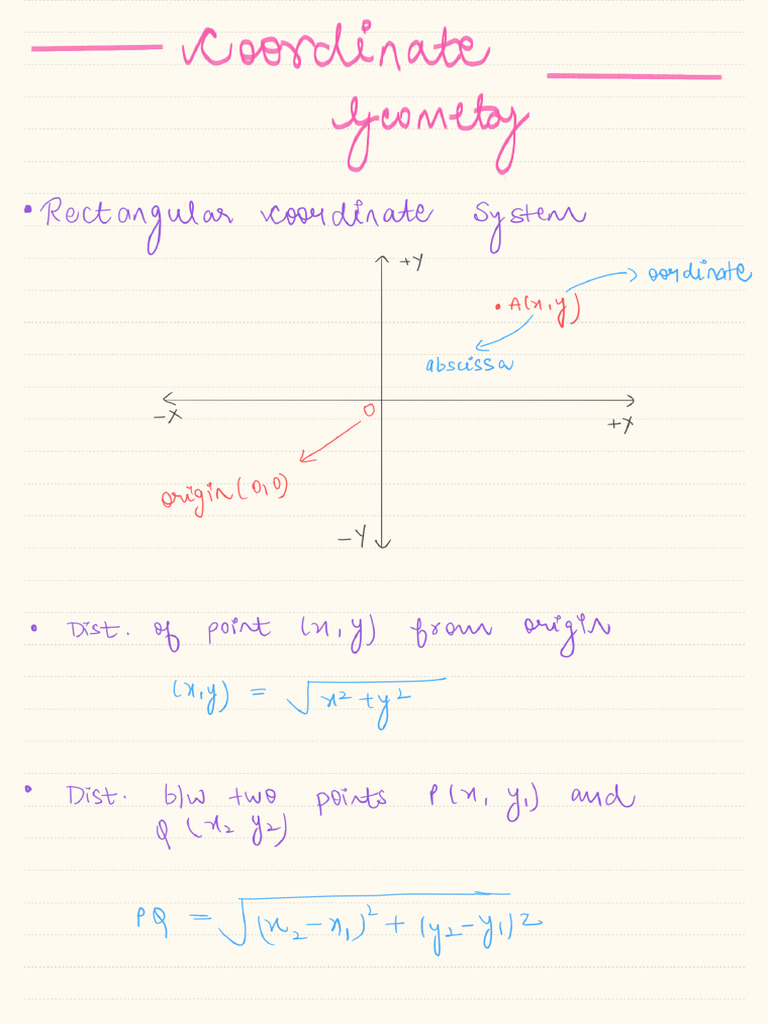 Coordinate
Geometry
• Rectangular coordinate System
+Y
oordinate
• A(x,y)
abscissa
-X
O
+X
origin(0,0)
-Y
• Dist. of point (x,y) from origin
(x,y) = √x² + y²
• Dist. b/w two points P(x, y₁) and
Q (x₂ y₂)
PQ = √(x₂-x₁)² + (y₂-y₁)2